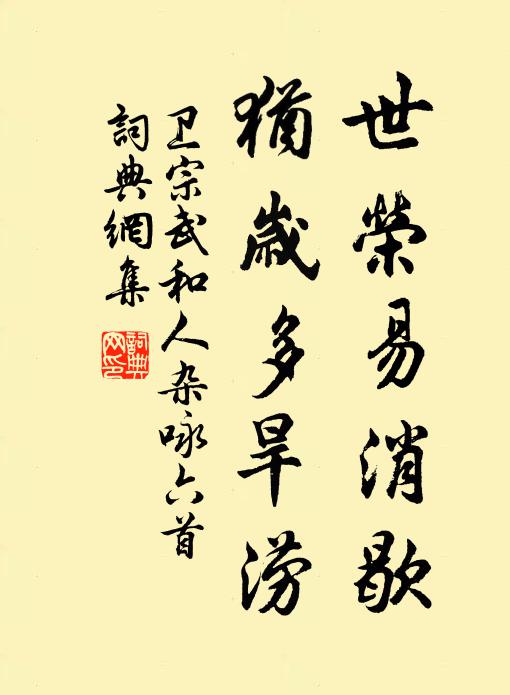 世榮易消歇
猶歲多旱澇
卫宗武和人杂咏六首
詞典網集
詞典
网印